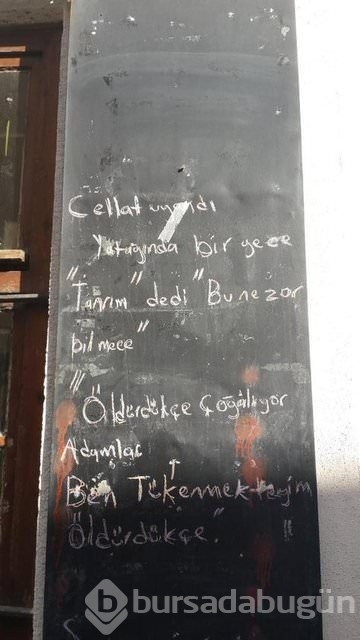 Cellat uyandı
Yatağında bir gece
"Tanrım" dedi "Bu ne zor
bilmece"
"Öldürdükçe Çoğalıyor
Adamlar
Ben Tükenmekteyim
Öldürdükçe."
bursadabugün